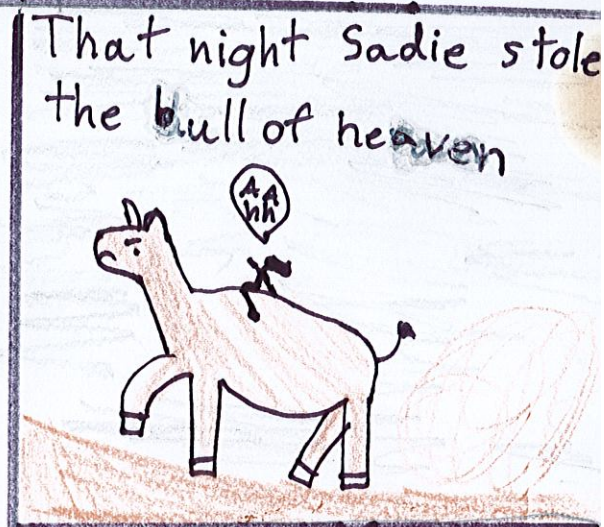 That night Sadie stole
the bull of heaven
AA
hh